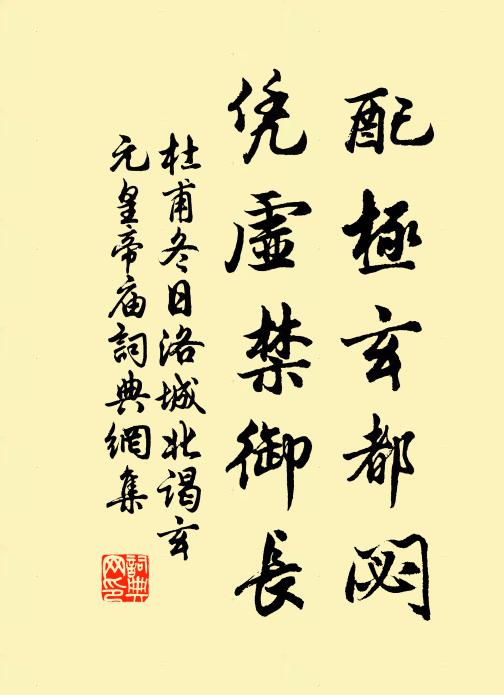 配極玄都閟
凭虛禁御長
杜甫冬日洛城北謁玄
元皇帝庙詞典網集
詞典网印